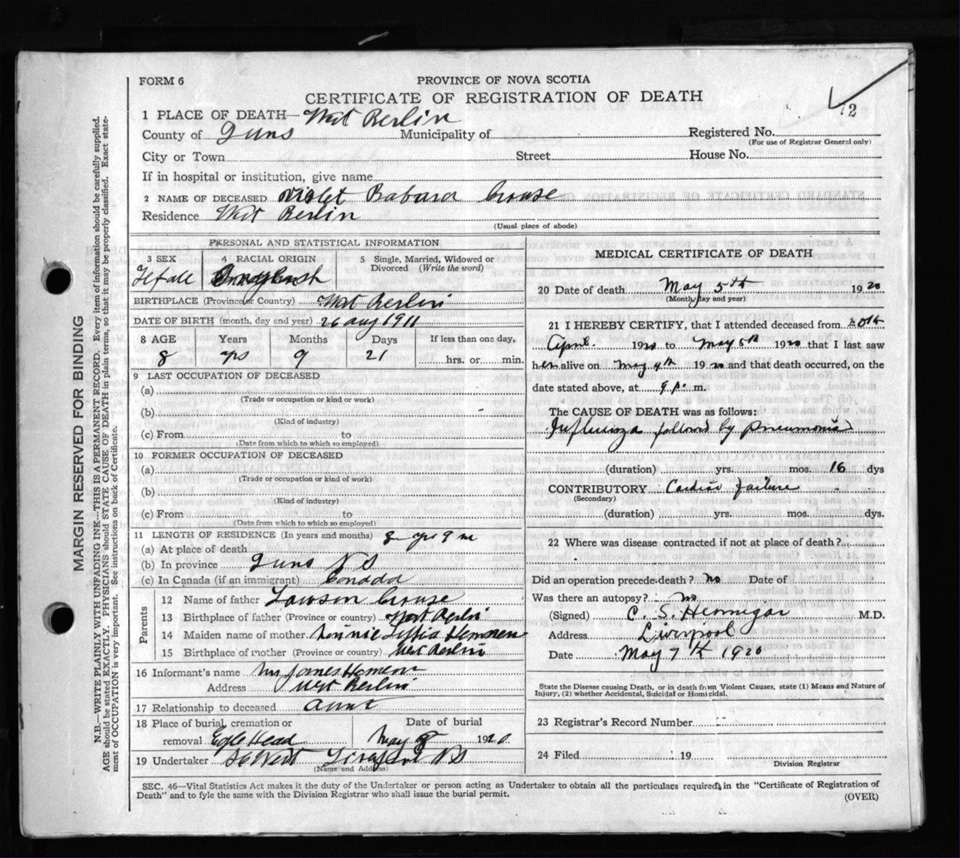 FORM 6
PROVINCE OF NOVA SCOTIA
CERTIFICATE OF REGISTRATION OF DEATH
72
1 PLACE OF DEATH— West Berlin
County of Municipality of Registered No.
(For use of Registrar General only)
City or Town Street House No.
If in hospital or institution, give name
2 NAME OF DECEASED Violet Crouse
Residence West Berlin
(Usual place of abode)
PERSONAL AND STATISTICAL INFORMATION
3 SEX 4 RACIAL ORIGIN 5 Single, Married, Widowed or Divorced (Write the word)
BIRTHPLACE (Province or Country) West Berlin
DATE OF BIRTH (month, day and year) 26 aug 1911
8 AGE Years Months Days If less than one day,
8 yrs 9 21 hrs. or min.
9 LAST OCCUPATION OF DECEASED
(a)
(Trade or occupation or kind or work)
(b)
(Kind of industry)
(c) From to
(Date from which to which so employed)
10 FORMER OCCUPATION OF DECEASED
(a)
(Trade or occupation or kind of work)
(b)
(Kind of industry)
(c) From to
(Date from which to which so employed)
11 LENGTH OF RESIDENCE (In years and months) 8 yrs 9 m
(a) At place of death
(b) In province N S
(c) In Canada (if an immigrant) Canada
Parents
12 Name of father Lawson Crouse
13 Birthplace of father (Province or country) West Berlin
14 Maiden name of mother
15 Birthplace of mother (Province or country) West Berlin
16 Informant's name Mrs James
Address West Berlin
17 Relationship to deceased Aunt
18 Place of burial, cremation or removal Date of burial
Head May 1920.
19 Undertaker N S
(Name and Address)
MEDICAL CERTIFICATE OF DEATH
20 Date of death May 5th 1920
(Month, day and year)
21 I HEREBY CERTIFY, that I attended deceased from 20th
April 1920 to May 5th 1920 that I last saw
her alive on May 4th 1920 and that death occurred, on the
date stated above, at 9 p. m.
The CAUSE OF DEATH was as follows:
Influenza followed by pneumonia
(duration) yrs. mos. 16 dys
CONTRIBUTORY Cardiac failure
(Secondary)
(duration) yrs. mos. dys
22 Where was disease contracted if not at place of death?
Did an operation precede death? no Date of
Was there an autopsy? no
(Signed) C. S. Hennigar M.D.
Address Liverpool
Date May 7th 1920
State the Disease causing Death, or in death from Violent Causes, state (1) Means and Nature of
Injury, (2) whether Accidental, Suicidal or Homicidal.
23 Registrar's Record Number
24 Filed 19
Division Registrar
SEC. 46—Vital Statistics Act makes it the duty of the Undertaker or person acting as Undertaker to obtain all the particulars required in the "Certificate of Registration of
Death" and to fyle the same with the Division Registrar who shall issue the burial permit.
(OVER)
MARGIN RESERVED FOR BINDING
N.B.—WRITE PLAINLY WITH UNFADING INK—THIS IS A PERMANENT RECORD. Every item of information should be carefully supplied.
AGE should be stated EXACTLY. PHYSICIANS should STATE CAUSE OF DEATH in plain terms, so that it may be properly classified. Exact state-
ment of OCCUPATION is very important. See instructions on back of Certificate.